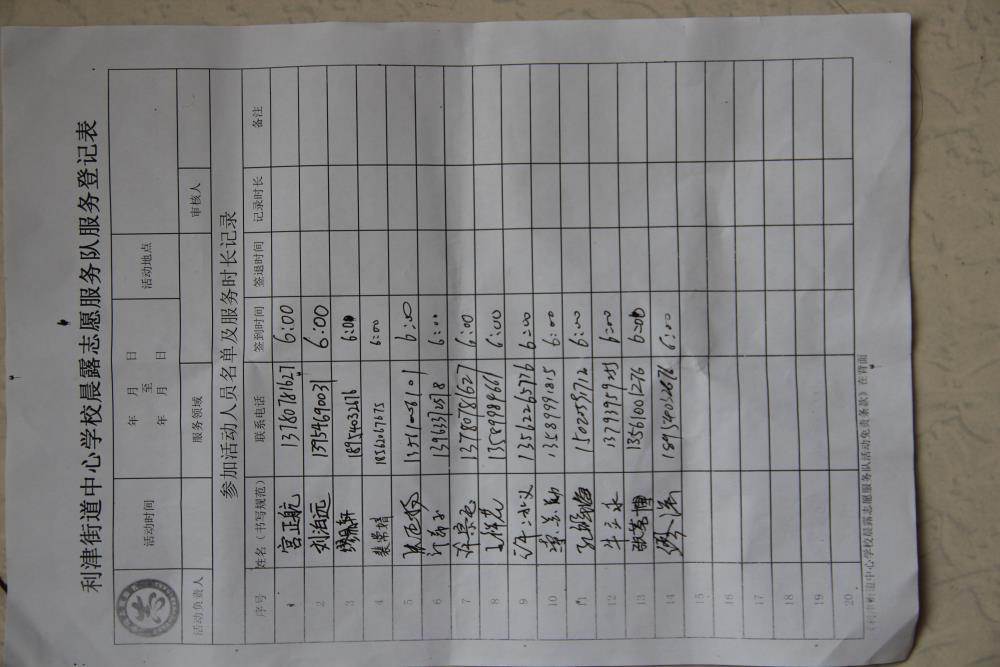 利津街道中心学校晨露志愿服务队服务登记表
活动时间 年 月 日 至 年 月 日 活动地点
活动负责人 服务领域 审核人
参加活动人员名单及服务时长记录
序号 姓名(书写规范) 联系电话 签到时间 签退时间 记录时长 备注
1 宫正航 13780781627 6:00
2 刘治远 13954690031 6:00
3 18954032676 6:00
4 裴常婧 18562067675 6:00
5 6:00
6 6:00
7 13780781627 6:00
8 13589984661 6:00
9 13562265776 6:00
10 13589991815 6:00
11 15020597712 6:00
12 牛立永 6:00
13 张营博 13561001276 6:00
14 18954032676 6:00
15
16
17
18
19
20
《利津街道中心学校晨露志愿服务队活动免责条款》在背面